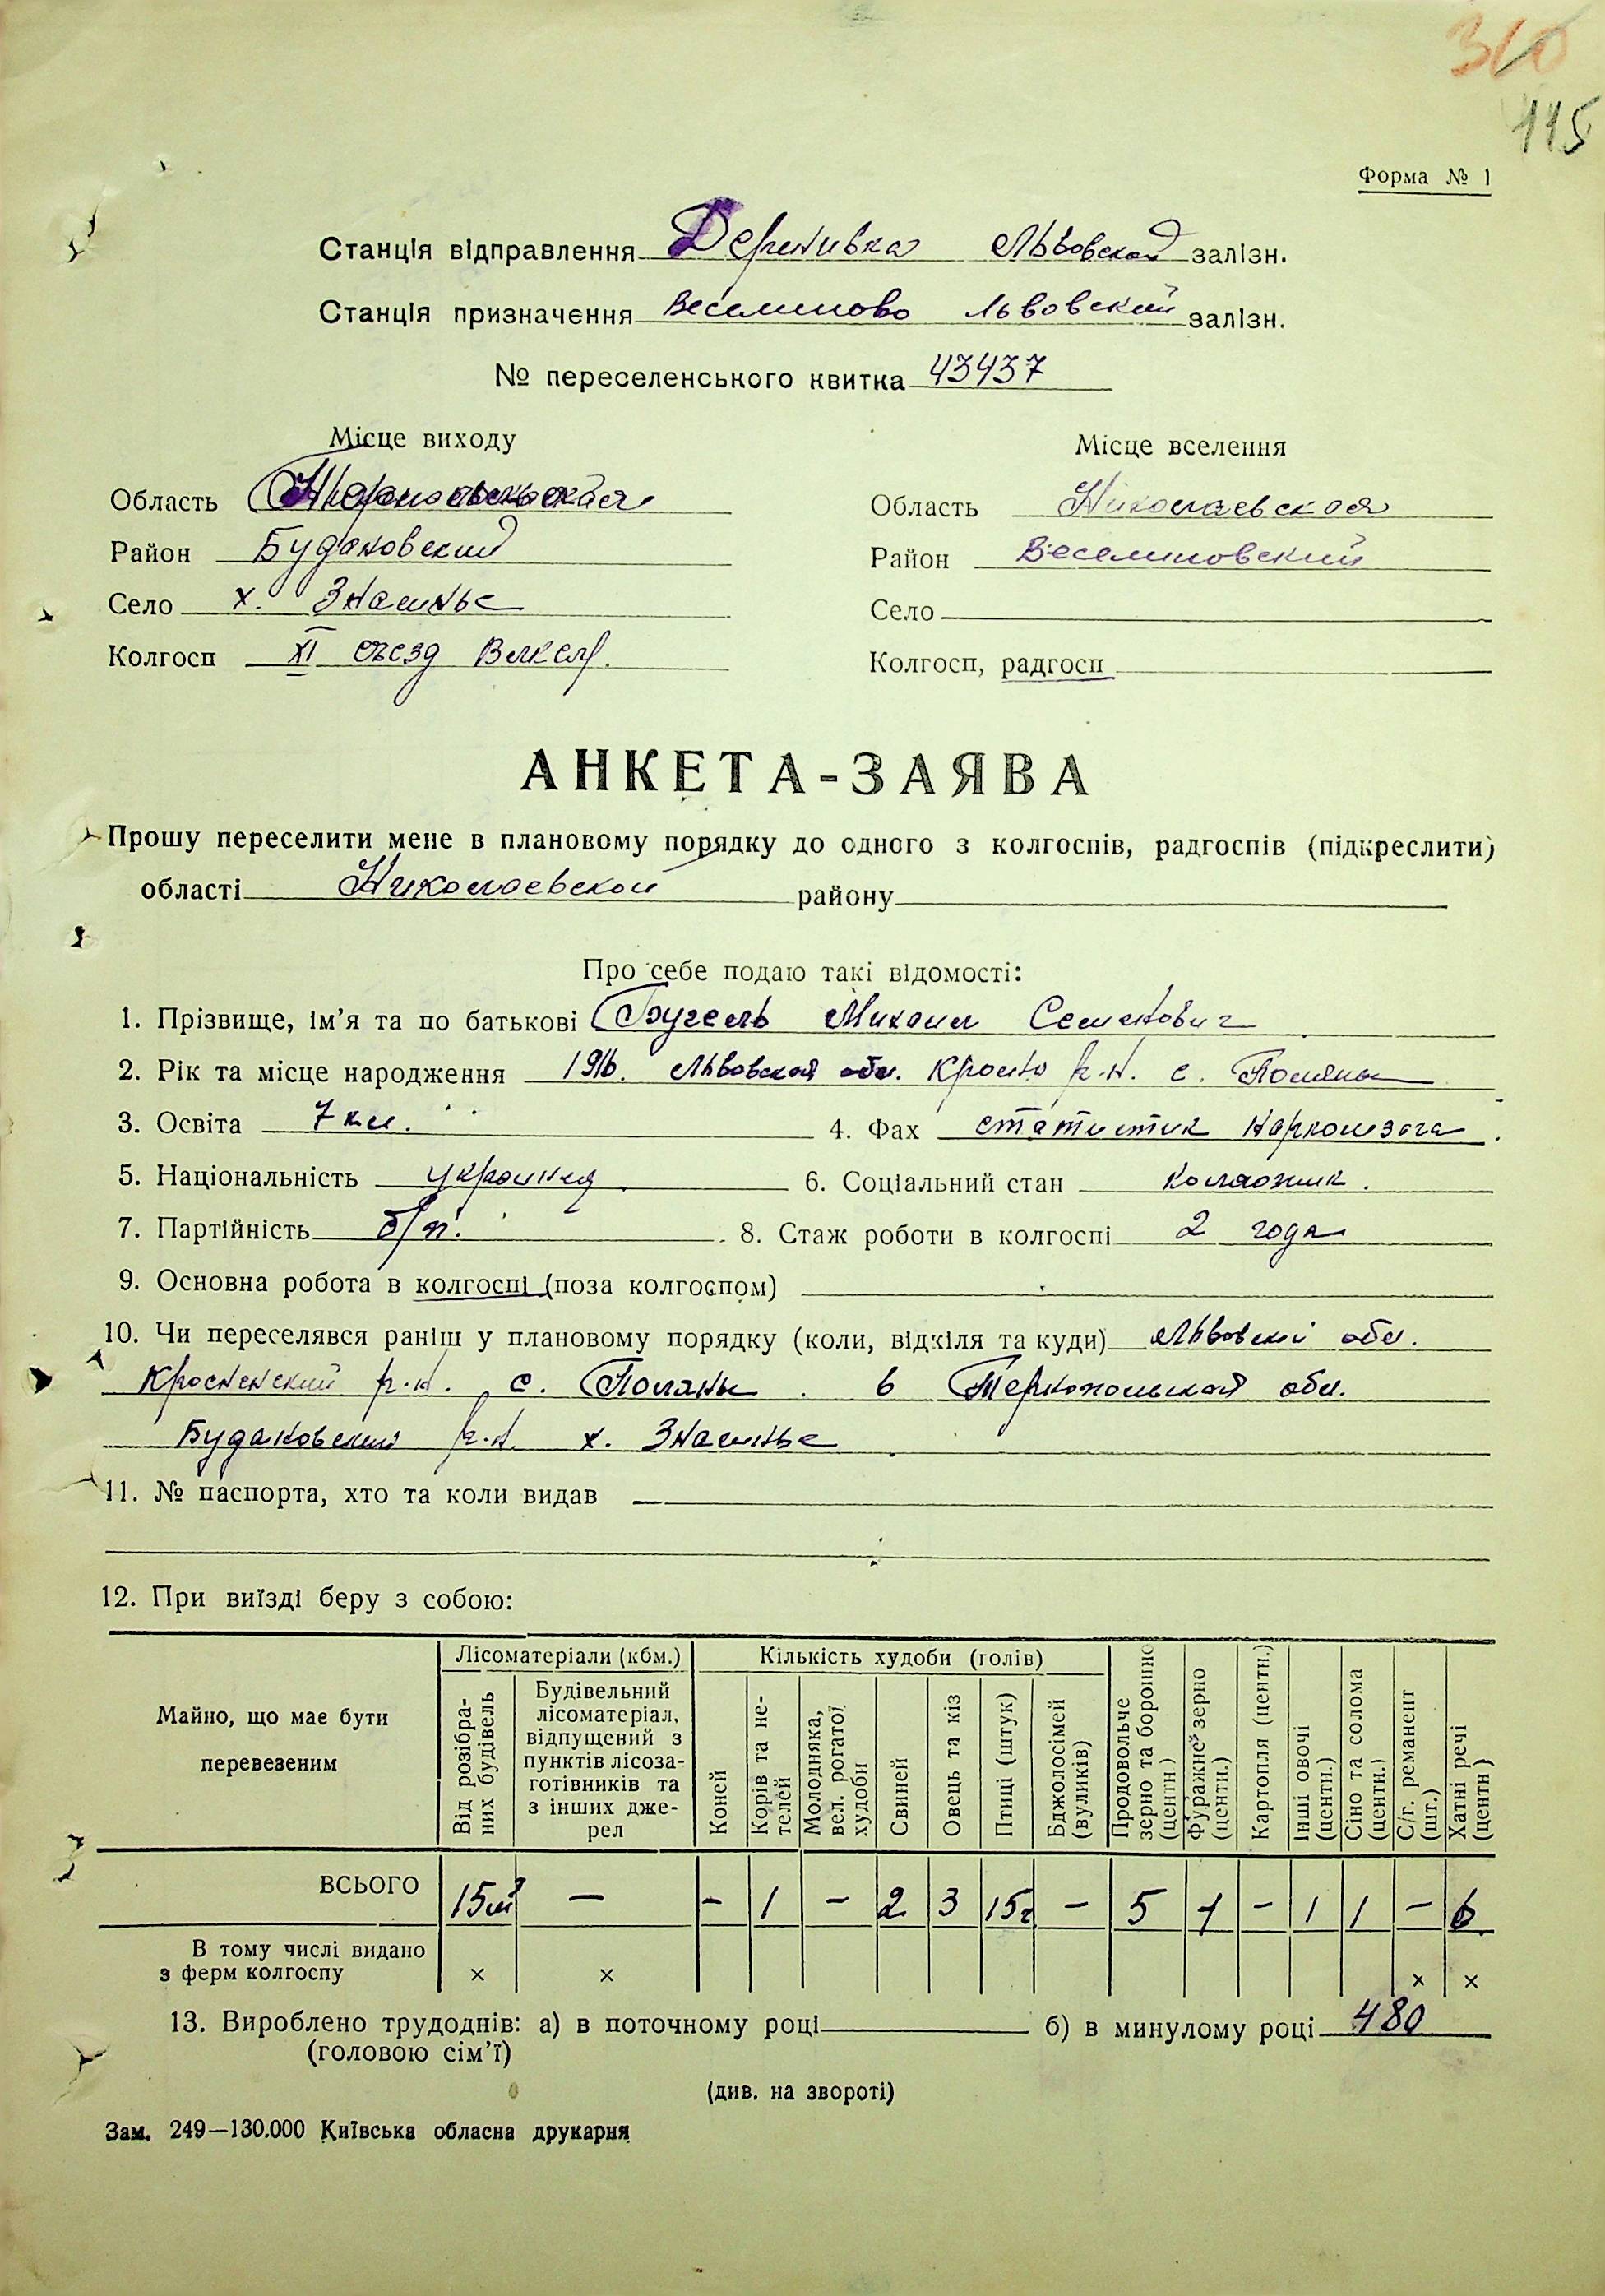 310
115
Форма № 1
Станція відправлення Деренивка Львовской залізн.
Станція призначення Веселиново Львовский залізн.
№ переселенського квитка 43437
Місце виходу
Область Тернопольская
Район Будановский
Село х. Знасинье
Колгосп XI съезд Влкслр.
Місце вселення
Область Николаевская
Район Веселиновский
Село
Колгосп, радгосп
АНКЕТА-ЗАЯВА
Прошу переселити мене в плановому порядку до одного з колгоспів, радгоспів (підкреслити)
області Николаевской району
Про себе подаю такі відомості:
1. Прізвище, ім'я та по батькові Михаил Семенович
2. Рік та місце народження 1916. Львовская обл. Кросно р-н. с. Поляны
3. Освіта 7 кл. 4. Фах статистик
5. Національність украинец 6. Соціальний стан колхозник.
7. Партійність б/п. 8. Стаж роботи в колгоспі 2 года
9. Основна робота в колгоспі (поза колгоспом)
10. Чи переселявся раніш у плановому порядку (коли, відкіля та куди) Львовский обл.
Кросненский р-н. с. Поляны. в Тернопольской обл.
Будановский р-н. х. Знасинье
11. № паспорта, хто та коли видав —
12. При виїзді беру з собою:
Майно, що має бути перевезеним
Лісоматеріали (кбм.)
Від розібраних будівель
Будівельний лісоматеріал, відпущений з пунктів лісозаготівників та з інших джерел
Кількість худоби (голів)
Коней
Корів та нетелей
Молодняка, вел. рогатої худоби
Свиней
Овець та кіз
Птиці (штук)
Бджолосімей (вуликів)
Продовольче зерно та борошно (центн.)
Фуражне зерно (центн.)
Картопля (центн.)
Інші овочі (центн.)
Сіно та солома (центн.)
С/г. реманент (шт.)
Хатні речі (центн)
ВСЬОГО 15м³ — - 1 - 2 3 15 - 5 1 - 1 1 - 6
В тому числі видано з ферм колгоспу × × × ×
13. Вироблено трудоднів: а) в поточному році б) в минулому році 480
(головою сім'ї)
(див. на звороті)
Зам. 249—130.000 Київська обласна друкарня